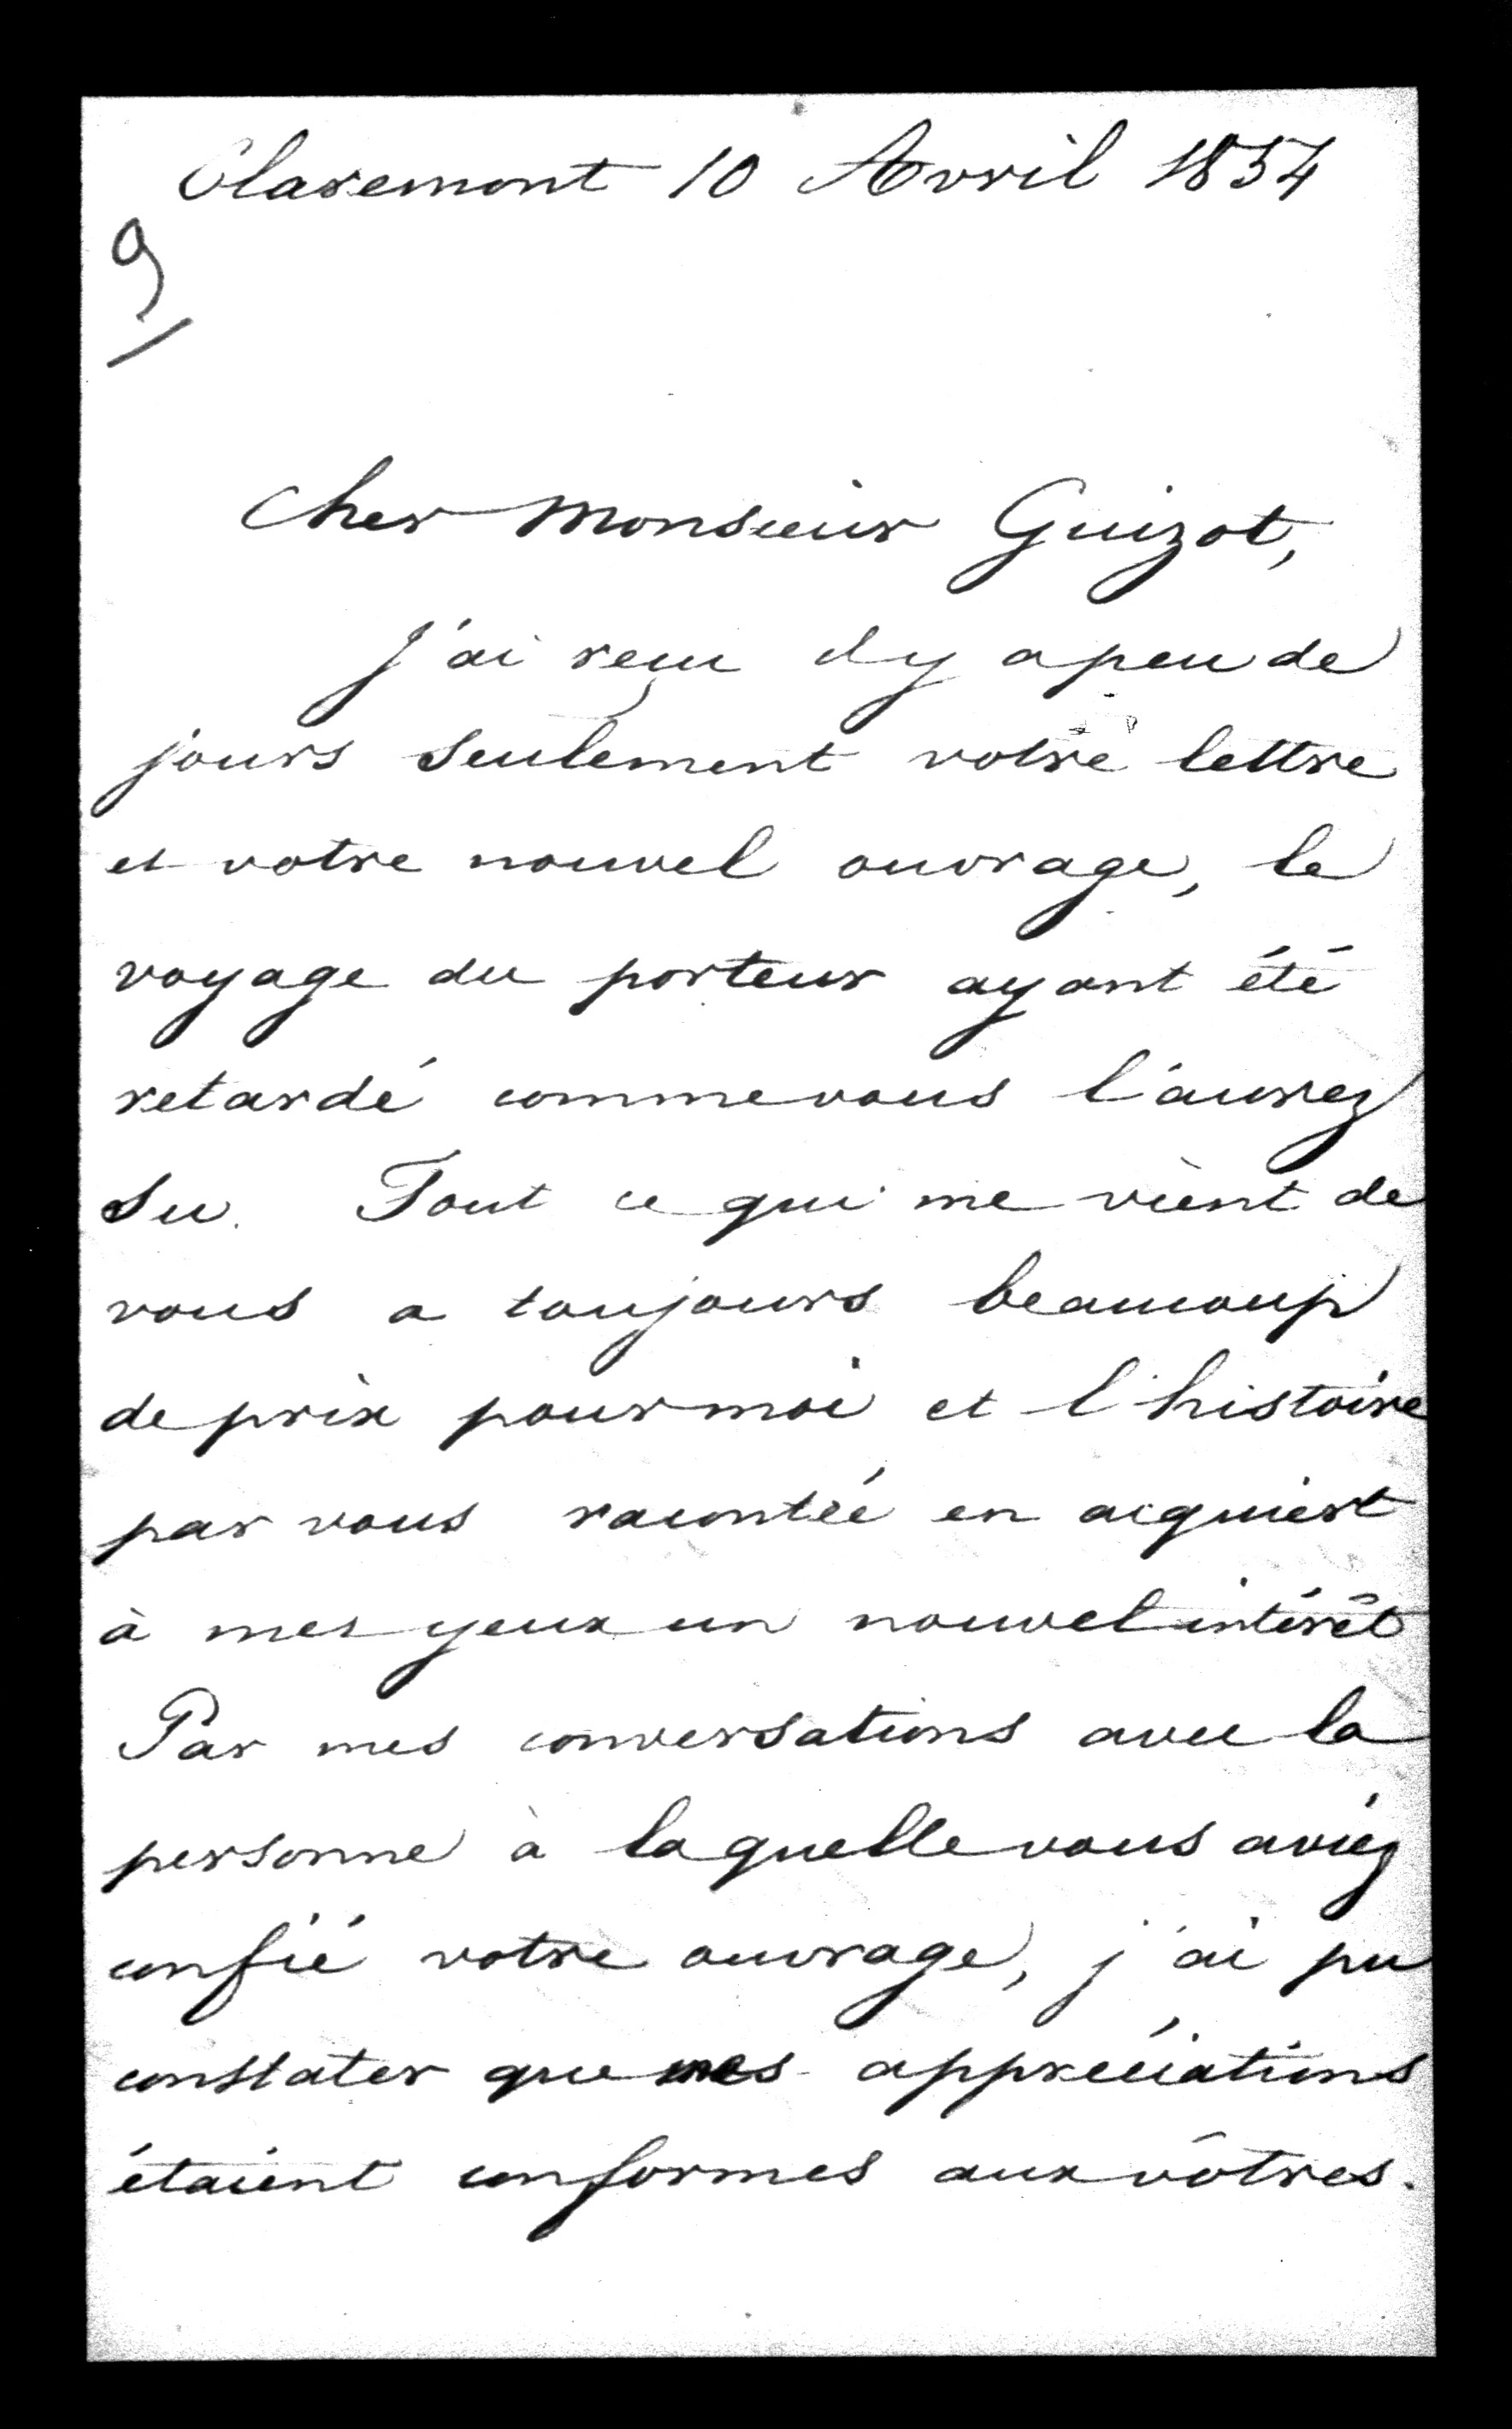 Claremont 10 Avril 1854
9
Cher Monsieur Guizot,
J'ai reçu il y a peu de
jours seulement votre lettre
et votre nouvel ouvrage, le
voyage du porteur ayant été
retardé comme vous l'aurez
su. Tout ce qui me vient de
vous a toujours beaucoup
de prix pour moi et l'histoire
par vous racontée en acquiert
à mes yeux un nouvel intérêt
Par mes conversations avec la
personne à laquelle vous aviez
confié votre ouvrage, j'ai pu
constater que mes appréciations
étaient conformes aux vôtres.